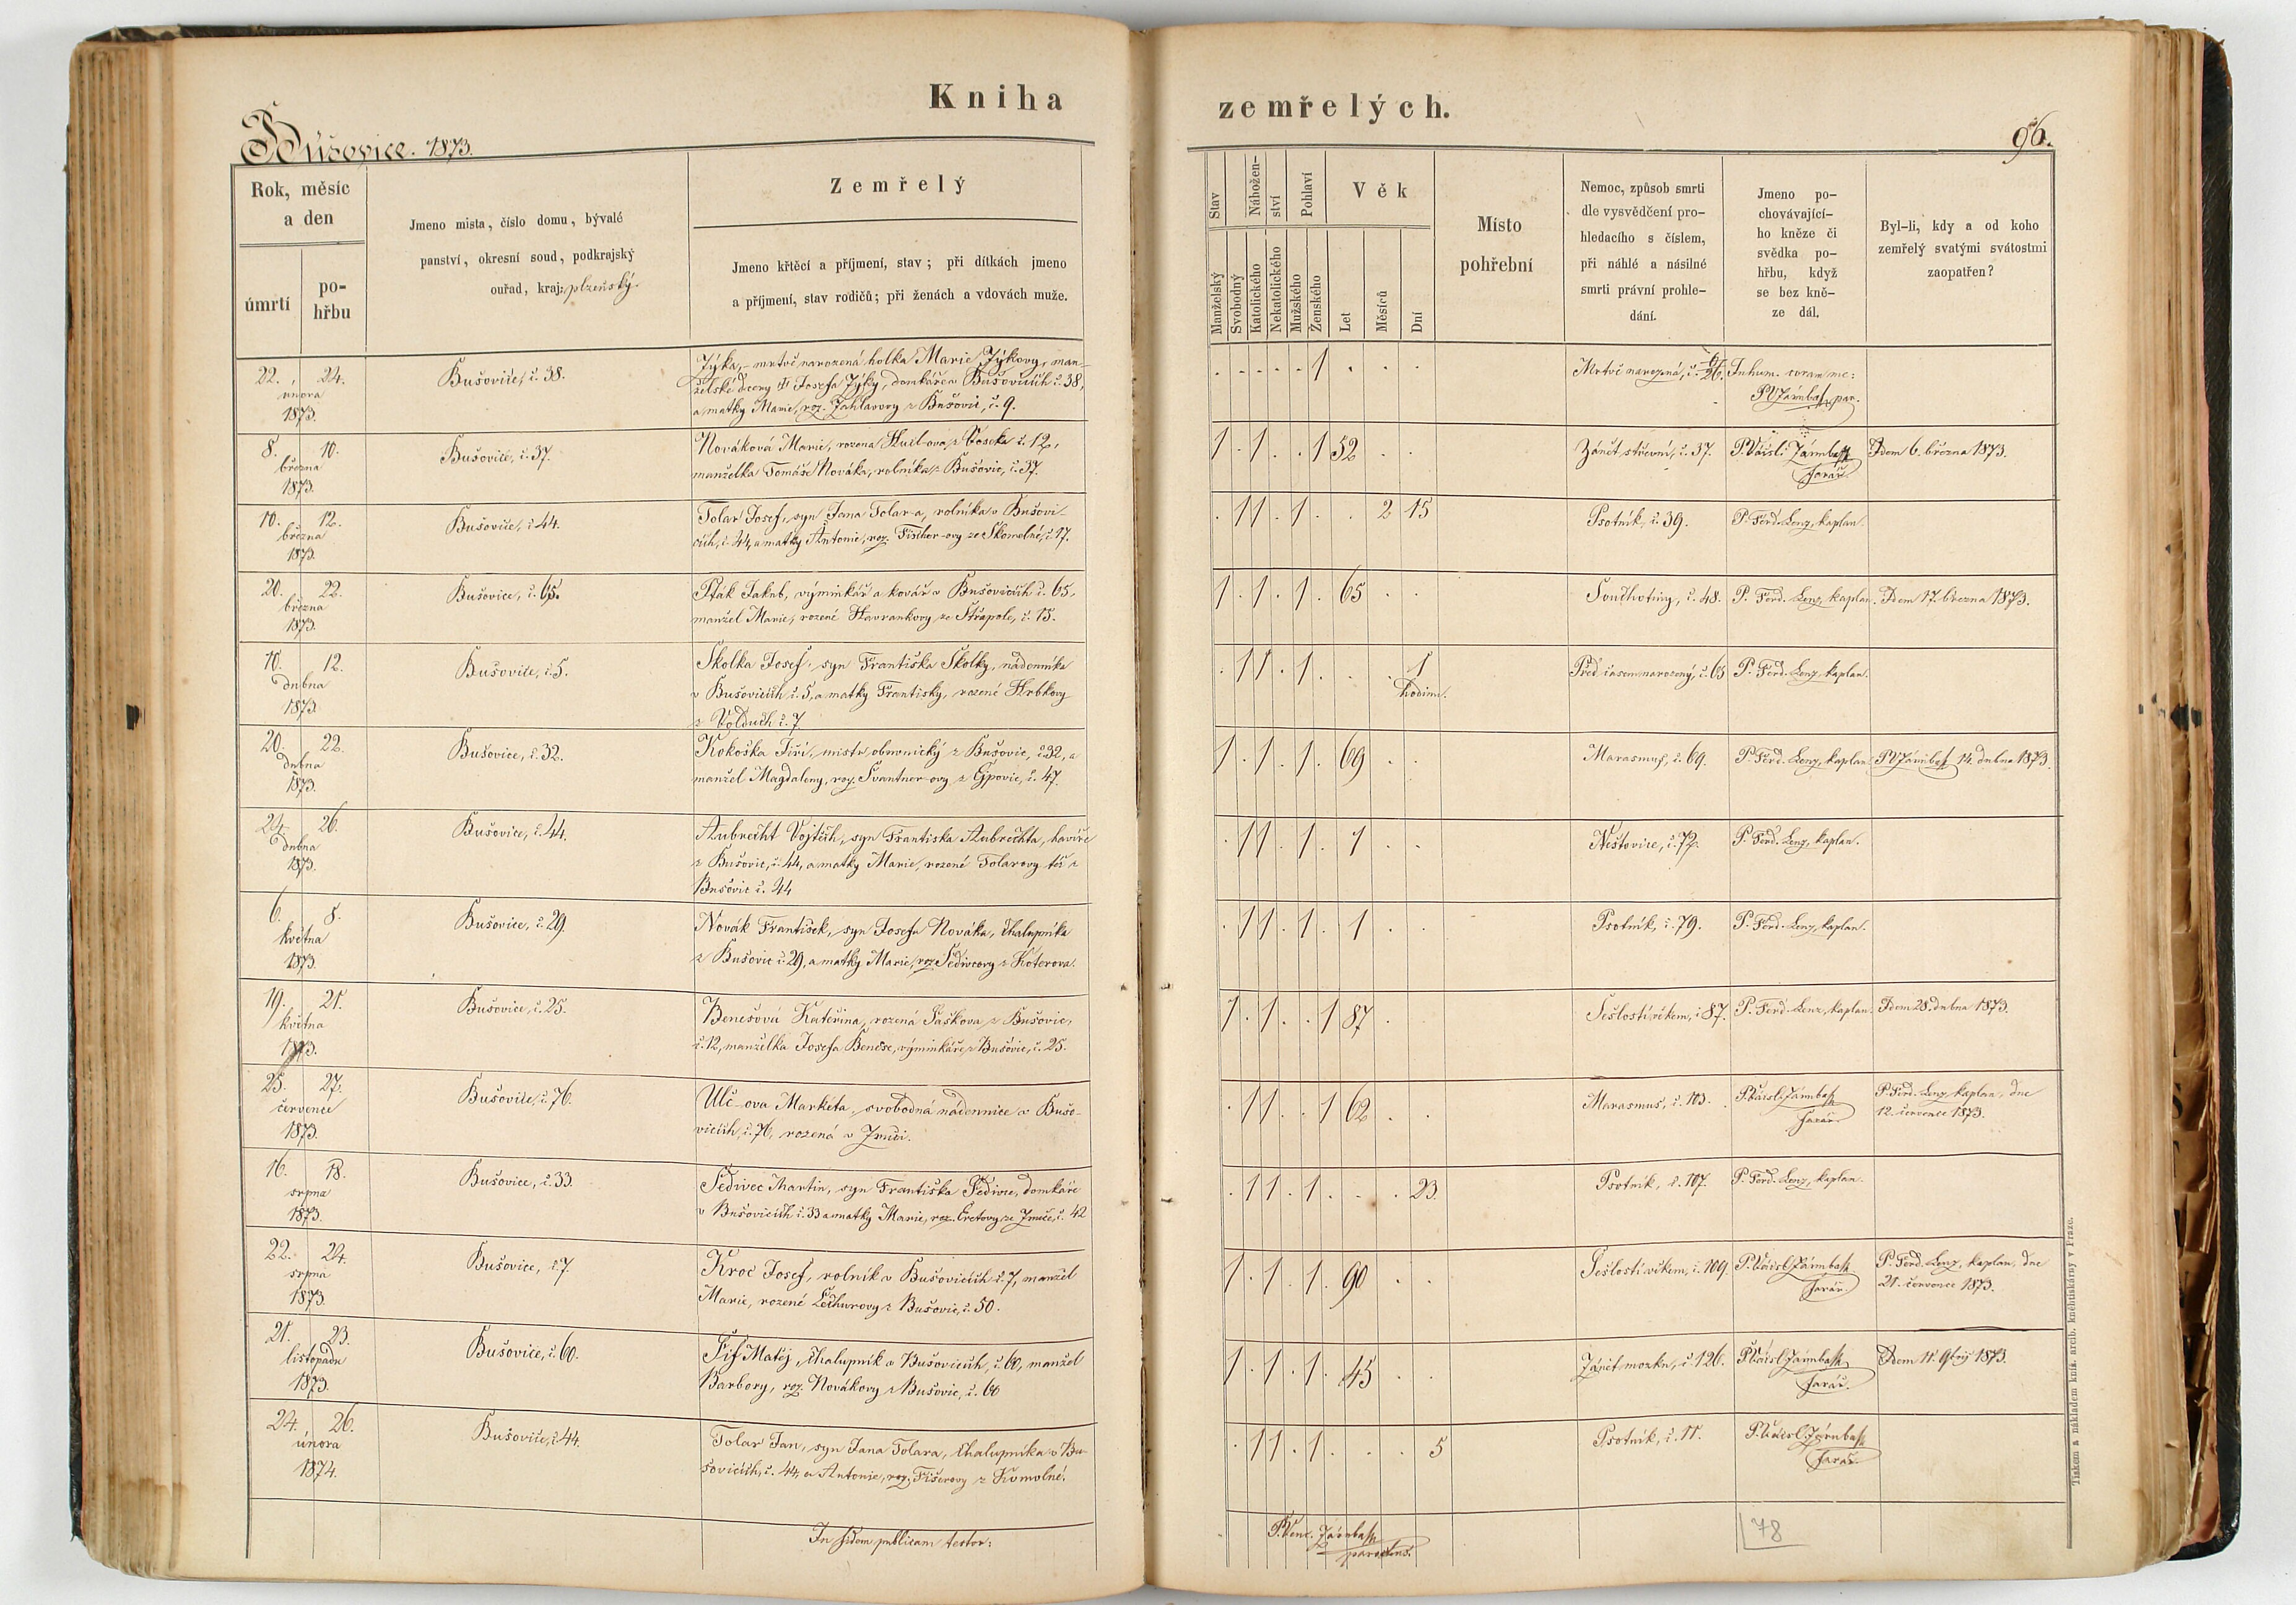 Kniha zemřelých.
Bušovice. 1873.
96.
Rok, měsíc
a den
úmrtí
po-
hřbu
Jmeno mista, číslo domu, bývalé
panství, okresní soud, podkrajský
ouřad, kraj: plzeňský.
Zemřelý
Jmeno křtěcí a příjmení, stav; při dítkách jmeno
a příjmení, stav rodičů; při ženách a vdovách muže.
Stav
Manželský
Svobodný
Nábožen-
ství
Katolického
Nekatolického
Pohlaví
Mužského
Ženského
Věk
Let
Měsíců
Dní
Místo
pohřební
Nemoc, způsob smrti
dle vysvědčení pro-
hledacího s číslem,
při náhlé a násilné
smrti právní prohle-
dání.
Jmeno po-
chovávající-
ho kněze či
svědka po-
hřbu, když
se bez kně-
ze dál.
Byl-li, kdy a od koho
zemřelý svatými svátostmi
zaopatřen?
22. 24.
února
1873.
Bušovice, č. 38.
Jýka, mrtvě narozená holka Marie Jýkovy, man-
želské dcery Josefa Jýky, domkáře v Bušovicích č. 38,
a matky Marie, roz. z Bušovic, č. 9.
1
Mrtvě narozená, č. 26.
Inhum. coram me:
par.
8. 10.
března
1873.
Bušovice, č. 37.
Nováková Marie, rozená z Voseka č. 12,
manželka Tomáše Nováka, rolníka z Bušovic, č. 37.
1 1 1 52
Zánět střevní, č. 37.
farář.
Idem 6. března 1873.
10. 12.
března
1873.
Bušovice, č. 44.
Tolar Josef, syn Jana Tolar-a, rolníka v Bušovi-
cích, č. 44, a matky Antonie, roz. Fischer-ovy ze Skomelné, č. 17.
1 1 1 2 15
Psotník, č. 39.
P. Ferd. Lenz, kaplan.
20. 22.
března
1873.
Bušovice, č. 65.
Pták Jakub, výminkář a kovář v Bušovicích č. 65,
manžel Marie, rozené Havrankovy ze Střapole, č. 15.
1 1 1 65
Souchotiny, č. 48.
P. Ferd. Lenz, kaplan.
Idem 17. března 1873.
10. 12.
dubna
1873.
Bušovice, č. 5.
Skolka Josef, syn Františka Skolky, nádenníka
v Bušovicích č. 5, a matky Františky, rozené Hrbkovy
z Volduch č. 7
1 1 1 1
hodinu.
Před časem narozený, č. 63
P. Ferd. Lenz, kaplan.
20. 22.
dubna
1873.
Bušovice, č. 32.
Kokoška Jiří, mistr obuvnický z Bušovic, č. 32, a
manžel Magdaleny, roz. Svantner-ovy z Ejpovic, č. 47.
1 1 1 69
Marasmus, č. 69.
P. Ferd. Lenz, kaplan
14. dubna 1873.
24. 26.
dubna
1873.
Bušovice, č. 44.
Aubrecht Vojtěch, syn Františka Aubrechta, havíře
z Bušovic, č. 44, a matky Marie, rozené Tolarovy též z
Bušovic č. 44
1 1 1 1
Neštovice, č. 72.
P. Ferd. Lenz, kaplan.
6. 8.
května
1873.
Bušovice, č. 29.
Novák František, syn Josefa Nováka, chalupníka
z Bušovic č. 29, a matky Marie, roz. Šedivcovy z Koterova.
1 1 1 1
Psotník, č. 79.
P. Ferd. Lenz, kaplan.
19. 21.
května
1873.
Bušovice, č. 25.
Benešová Kateřina, rozená Saškova z Bušovic,
č. 12, manželka Josefa Beneše, výminkáře z Bušovic, č. 25.
1 1 1 87
Sešlostí věkem, č. 87.
P. Ferd. Lenz, kaplan.
Idem 28. dubna 1873.
25. 27.
července
1873.
Bušovice, č. 76.
Ulč-ova Markéta, svobodná nádennice v Bušo-
vicích, č. 76, rozená v
1 1 1 62
Marasmus, č. 103.
farář.
P. Ferd. Lenz, kaplan, dne
12. července 1873.
16. 18.
srpna
1873.
Bušovice, č. 33.
Šedivec Martin, syn Františka Šedivce, domkáře
v Bušovicích č. 33 a matky Marie, roz. č. 42
1 1 1 23
Psotník, č. 107.
P. Ferd. Lenz, kaplan.
22. 24.
srpna
1873.
Bušovice, č. 7.
Kroc Josef, rolník v Bušovicích č. 7, manžel
Marie, rozené Lechnrovy z Bušovic, č. 50.
1 1 1 90
Sešlostí věkem, č. 109.
farář.
P. Ferd. Lenz, kaplan, dne
21. července 1873.
21. 23.
listopadu
1873.
Bušovice, č. 60.
Fif Matěj, chalupník v Bušovicích, č. 60, manžel
Barbory, roz. Novákovy z Bušovic, č. 60
1 1 1 45
Zánět mozku, č. 126.
farář.
Idem 11. 9brij 1873.
24. 26.
února
1874.
Bušovice, č. 44.
Tolar Jan, syn Jana Tolara, chalupníka v Bu-
šovicích, č. 44, a Antonie, roz. Fišerovy z Komolné.
1 1 1 5
Psotník, č. 11.
farář.
In fidem publicam testor:
78
Tiskem a nákladem kníž. arcib. knëhtiskárny v Praze.